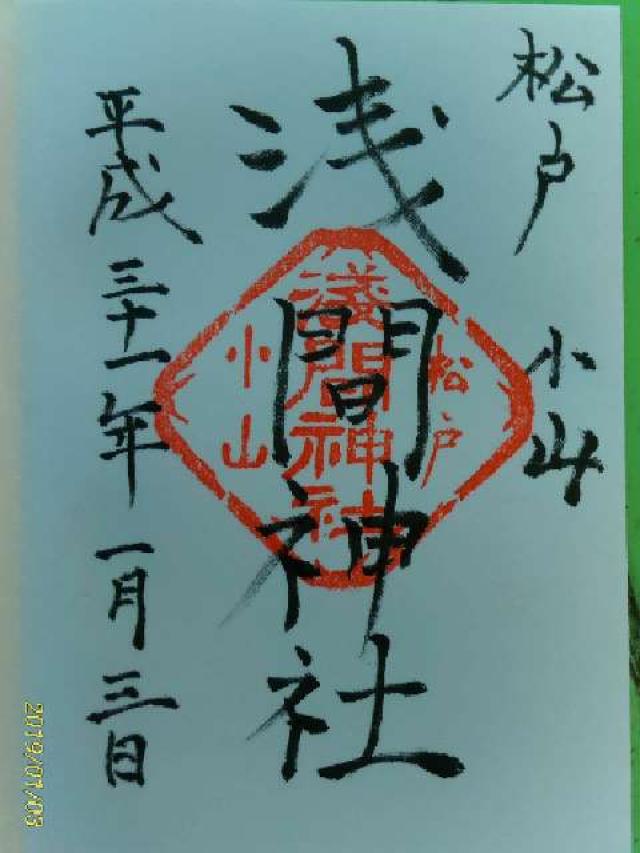 松戸 小山
浅間神社
平成三十一年一月三日
松戸
淺間神社
小山
2019/01/03